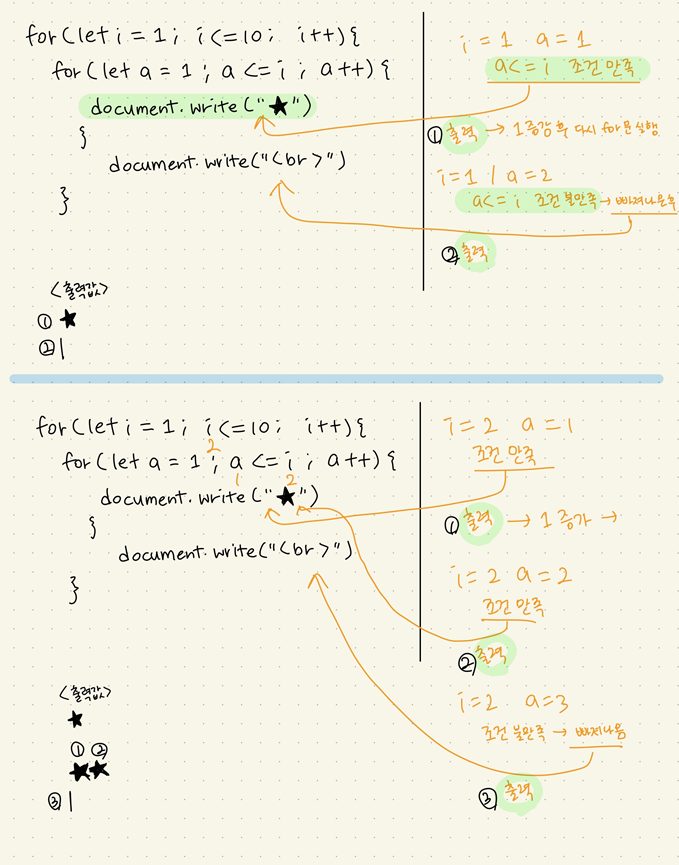 for(let i = 1; i<=10; i++){
for(let a = 1; a <= i; a++) {
document.write("★")
{
document.write("<br>")
}
<출력값>
① ★
② |
i = 1 a = 1
a<= i 조건 만족
① 출력 → 1 증감 후 다시 for문 실행
i=1 / a = 2
a<= i 조건 불만족 → 빠져나온 후
② 출력
for(let i = 1; i<=10; i++){
for(let a = 1; a <= i; a++) {
2
1 2
document.write("★")
{
document.write("<br>")
}
<출력값>
★
① ②
★★
③ |
i = 2 a = 1
조건 만족
① 출력 → 1 증가 →
i = 2 a = 2
조건 만족
② 출력
i=2 a=3
조건 불만족 → 빠져나옴
③ 출력